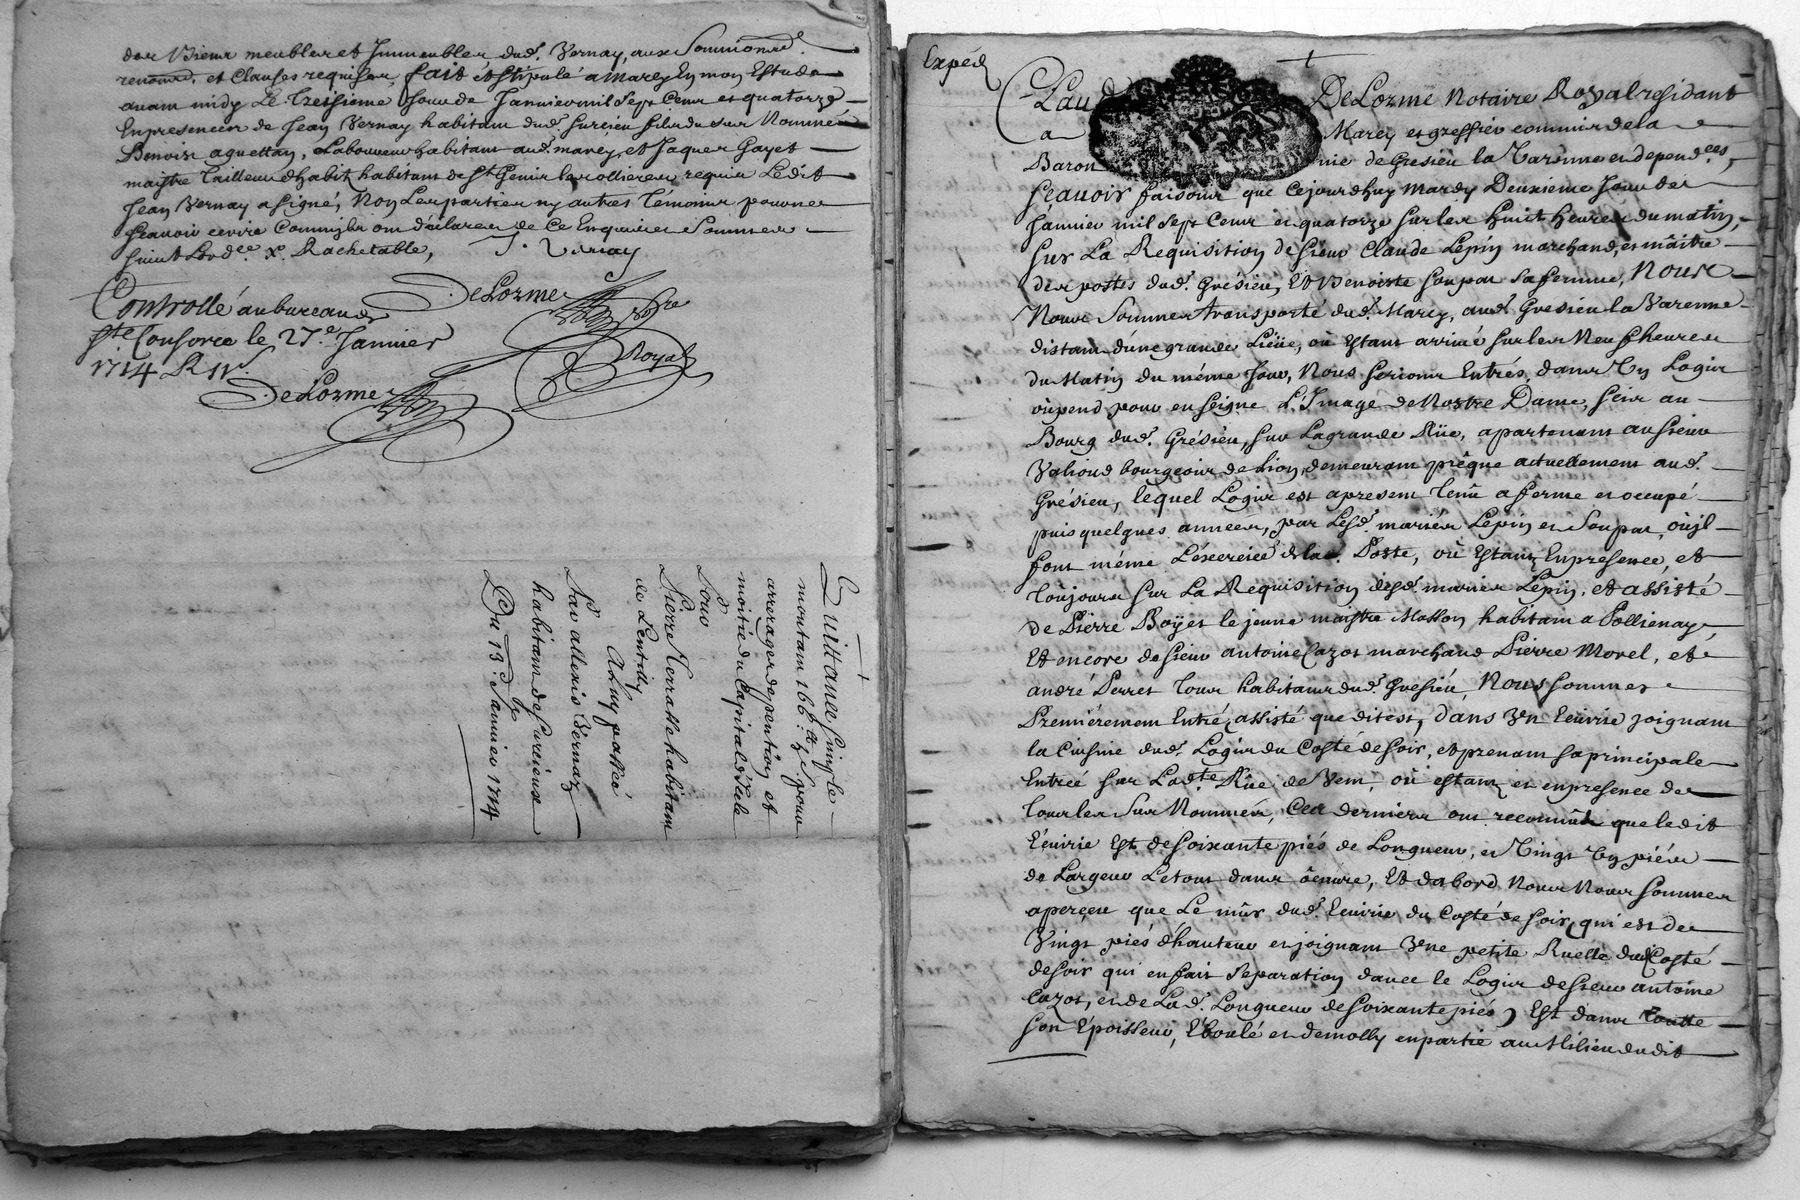 des Biens meubles et Immeubles dud. Vernay, aux Soumions
renond. et Clauses requises, fait et stipulé a Marcy En mon Estude
avam midy Le treisieme Jour de Janvier mil Sept Cens et quatorze
En presences de Jean Vernay habitam dud. Surcieu fils du sus Nommé
Benoist aguettan, Laboureur habitam aud. marcy, et Jaques Gayet
maistre tailleur d'habit habitam de St Genis les ollieres requis Ledit
Jean Vernay a signé, Non Les parties ny autres témoins pour ne
scavoir ecrire Commil ont déclaré de Ce Enquis et Sommes
suivt Lord.ce x. Rachetable, J. Vernay
DeLorme
Controllé au bureau de
Ste Consorce le 27.e Janvier
1714 R 11s.
DeLorme
Nore Royal
Quittance simple
montam 166.# z.s pour
arrerages de pention et
moitié du Capital d'icele
Pour
Pierre Torrasse habitam
de Lentilly
A luy passée
Par allexis Vernay
habitam de Surcieux
Du 13.e Janvier 1714
Expéd
Claude DeLorme Notaire Royal residant
a Marcy et greffier commis de la
Baronnie de Gresieu la Varenne et depend.ces,
scavoir faisons que Cejourdhuy mardy Deuxieme Jour de
Janvier mil Sept Cens et quatorze sur les huit heures du matin,
sur La Requisition de sieur Claude Lepin marchand, et mâitre
des postes dud. Grésieu, Et Benoiste soupat sa femme, Nous
Nous Sommes transporté dud. Marcy, aud. Gresieu la Varenne
distam d'une grande Lieüe, où Estant arrivé sur les Neuf heures
du Matin du même Jour, Nous serions Entrés, dans Un Logis
où pend pour enseigne L'Image de Nostre Dame, scis au
Bourg dud. Grésieu, sur La grande Rüe, apartenant au sieur
Valioud bourgeois de Lion, demeuram presque actuellement aud.
Grésieu, lequel Logis est apresent tenû a ferme et occupé
puis quelques années, par Lesd. mariés Lepin et Soupat, où jl
font même L'éxercice de la Poste, où Estant, Enpresence, et
toûjours sur La Requisition desd. mariés Lepin, et assisté
de Pierre Boÿer le jeune maistre Masson habitam a Pollienay,
Et encore de sieur antoine Cazot marchand Pierre Morel, et
andré Perret tous habitans dud. Gresieu, Nous sommes
Premiérement Entré, assisté que dit est, dans Une Ecuirie joignam
la Cuisine dud. Logis du Costé de soir, et prenam sa principale
Entrée sur Lad.te Rüe de Vent, où estant, et en presence de
tous les sus Nommés, Ces derniers ont reconnût que ledit
Ecuirie Est de soixante piés de Longueur, et Vingt Un piés
de Largeur Le tout dans œuvre, Et dabord Nous Nous sommes
aperçeu que Le mûr dud. Ecuirie du Costé de soir, qui est de
Vingt piés d'hauteur et joignam Une petite Ruelle dud. Costé
de soir qui en fait separation d'avec le Logis de sieur antoine
Cazot, et de Lad. Longueur de soixante piés, Est dans toutte
son Epoisseur, Eboulé et demolly en partie au Milieu dudit